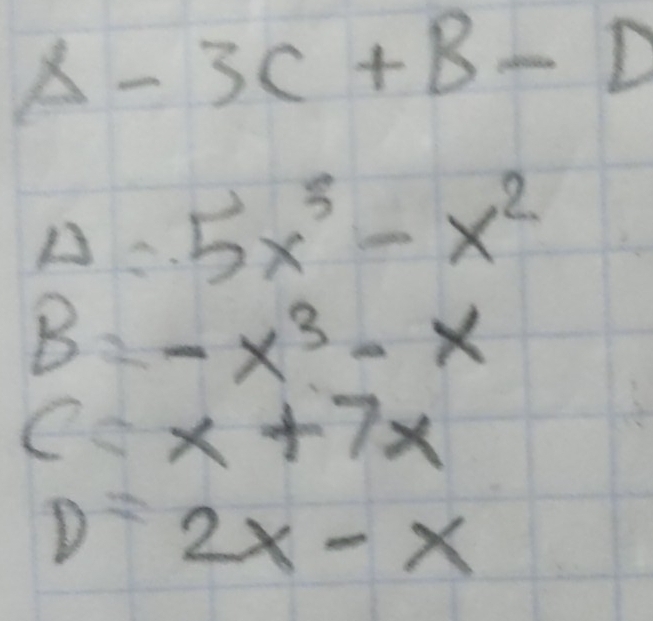 A - 3C + B - D
A = 5x³ - x²
B = - x³ - x
C = x + 7x
D = 2x - x